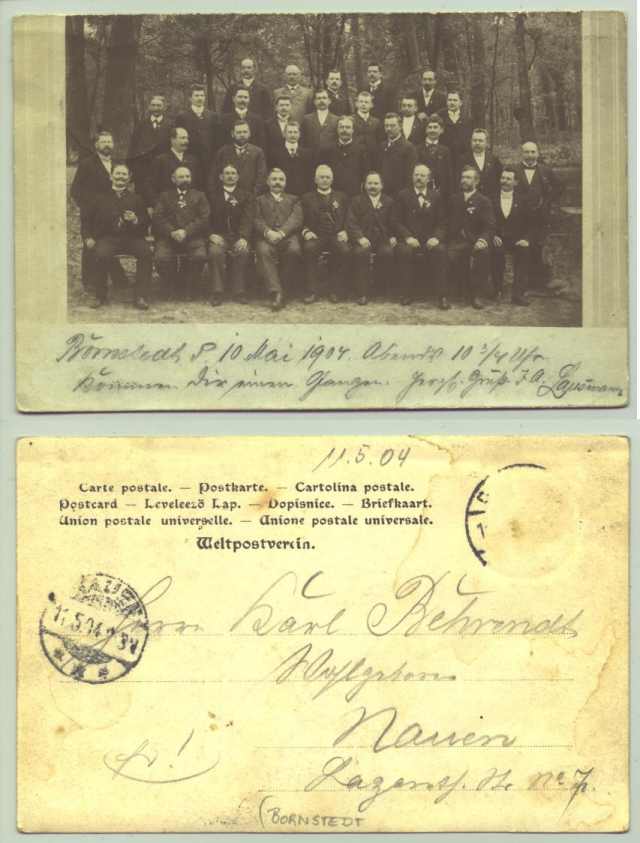 Bornstedt P. 10 Mai 1904. Abends 10 3/4 Uhr
Kommen Dir einen Ganzen. Herzl. Gruß
11.5.04
Carte postale. — Postkarte. — Cartolina postale.
Postcard — Leveleező Lap. — Dopisnice. — Briefkaart.
Union postale universelle. — Unione postale universale.
Weltpostverein.
NAUEN
11.5.04
Herrn Karl Behrendt
Wohlgeboren
Nauen
No 7.
fr!
(BORNSTEDT